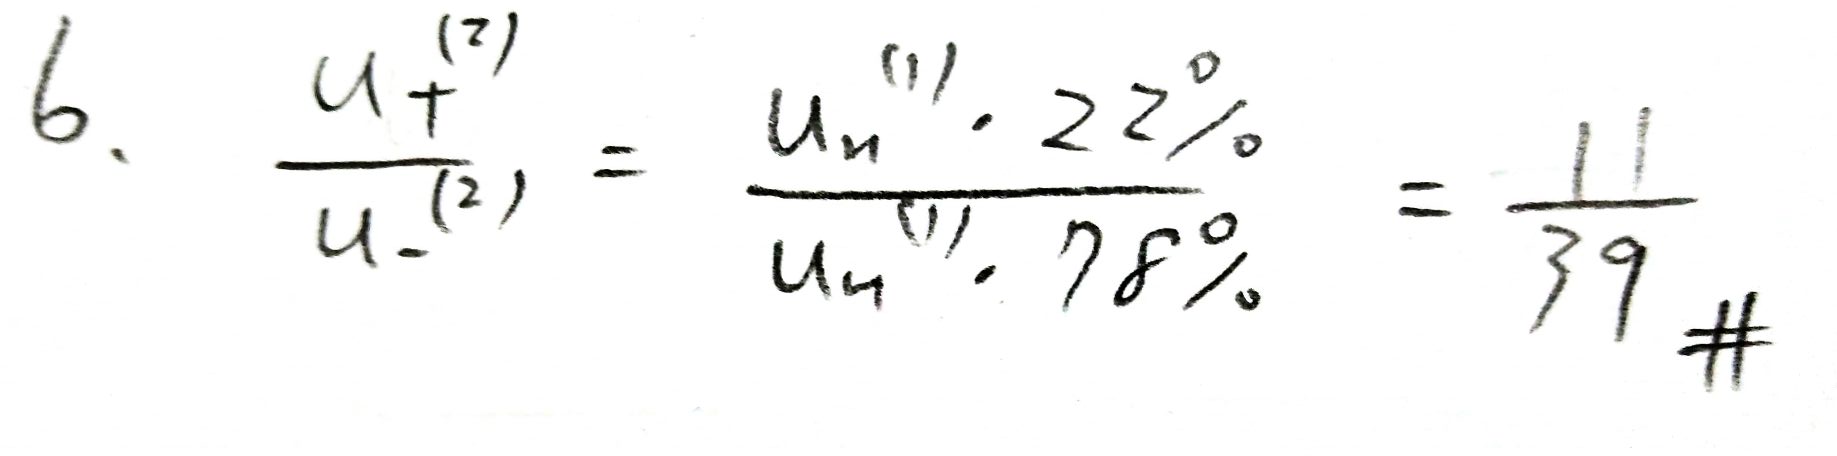 6. u₊⁽²⁾ / u₋⁽²⁾ = uₙ⁽¹⁾ · 22% / uₙ⁽¹⁾ · 78% = 11 / 39 #